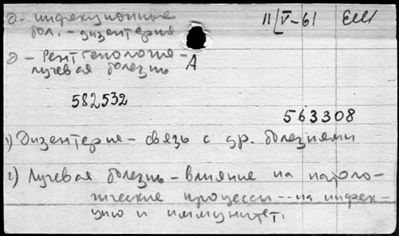 д - инфекционные 11/V-61
бол. - дизентерия
д - Рентгенология -
лучевая болезнь А
582532
563308
1) Дизентерия - связь с др. болезнями
2) Лучевая болезнь - влияние на патоло-
гические процессы - на инфек-
цию и иммунитет.